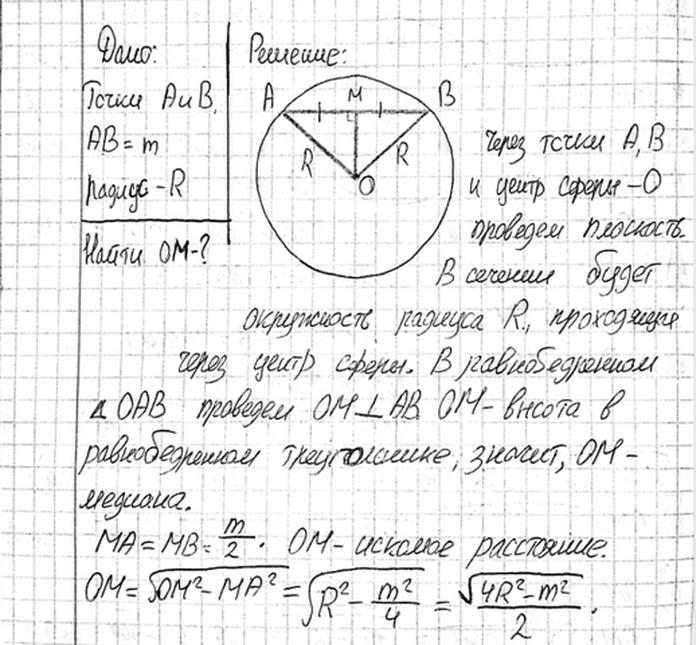 Дано:
Точки А и В,
АВ = m
радиус - R
Найти ОМ-?
Решение:
А М В
R R
О
Через точки А, В
и центр сферы - О
проведем плоскость.
В сечении будет
окружность радиуса R, проходящая
через центр сферы. В равнобедренном
Δ ОАВ проведем ОМ⊥АВ ОМ - высота в
равнобедренном треугольнике, значит, ОМ -
медиана.
МА = МВ = m/2. ОМ - искомое расстояние.
ОМ = √(ОМ² - МА²) = √(R² - m²/4) = √(4R² - m²)/2.